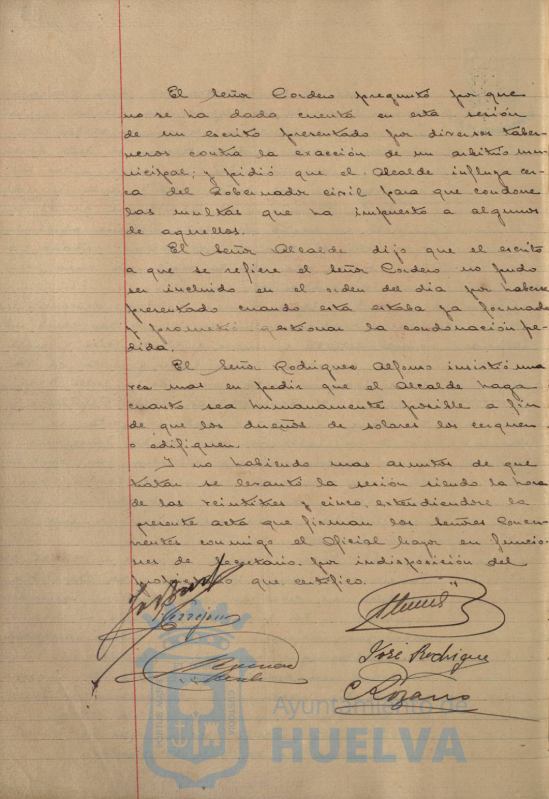 El Señor Cordero preguntó por que
no se ha dada cuenta en esta sesión
de un escrito presentado por diversos taber-
neros contra la exacción de un arbitrio mu-
nicipal; y pidió que el Alcalde influya cer-
ca del Gobernador civil para que condone
las multas que ha impuesto a algunos
de aquellos.
El Señor Alcalde dijo que el escrito
a que se refiere el Señor Cordero no pudo
ser incluido en el orden del dia por haberse
presentado cuando esta estaba ya formada
y prometió gestionar la condonación pe-
dida.
El Señor Rodriguez Alfonso insistió una
vez mas en pedir que el Alcalde haga
cuanto sea humanamente posible a fin
de que los dueños de solares los cerquen
o edifiquen.
Y no habiendo mas asuntos de que
tratar se levantó la sesión siendo la hora
de las veintitres y cinco, extendiendose la
presente acta que firman los señores concu-
rrentes conmigo el Oficial Mayor en funcio-
nes de Secretario por indisposición del
que certifico.
José Rodriguez
C Lozano
Ayuntamiento de
HUELVA